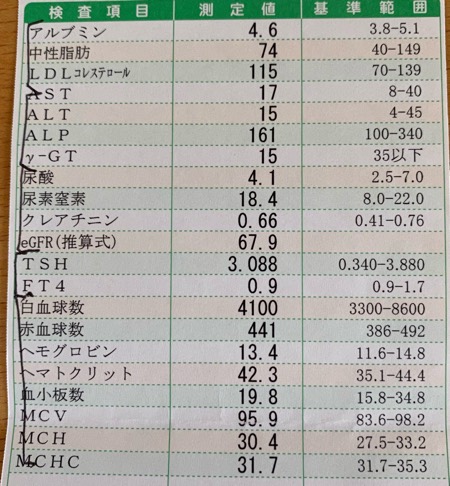 検査項目 測定値 基準範囲
アルブミン 4.6 3.8-5.1
中性脂肪 74 40-149
LDLコレステロール 115 70-139
AST 17 8-40
ALT 15 4-45
ALP 161 100-340
γ-GT 15 35以下
尿酸 4.1 2.5-7.0
尿素窒素 18.4 8.0-22.0
クレアチニン 0.66 0.41-0.76
eGFR(推算式) 67.9
TSH 3.088 0.340-3.880
FT4 0.9 0.9-1.7
白血球数 4100 3300-8600
赤血球数 441 386-492
ヘモグロビン 13.4 11.6-14.8
ヘマトクリット 42.3 35.1-44.4
血小板数 19.8 15.8-34.8
MCV 95.9 83.6-98.2
MCH 30.4 27.5-33.2
MCHC 31.7 31.7-35.3